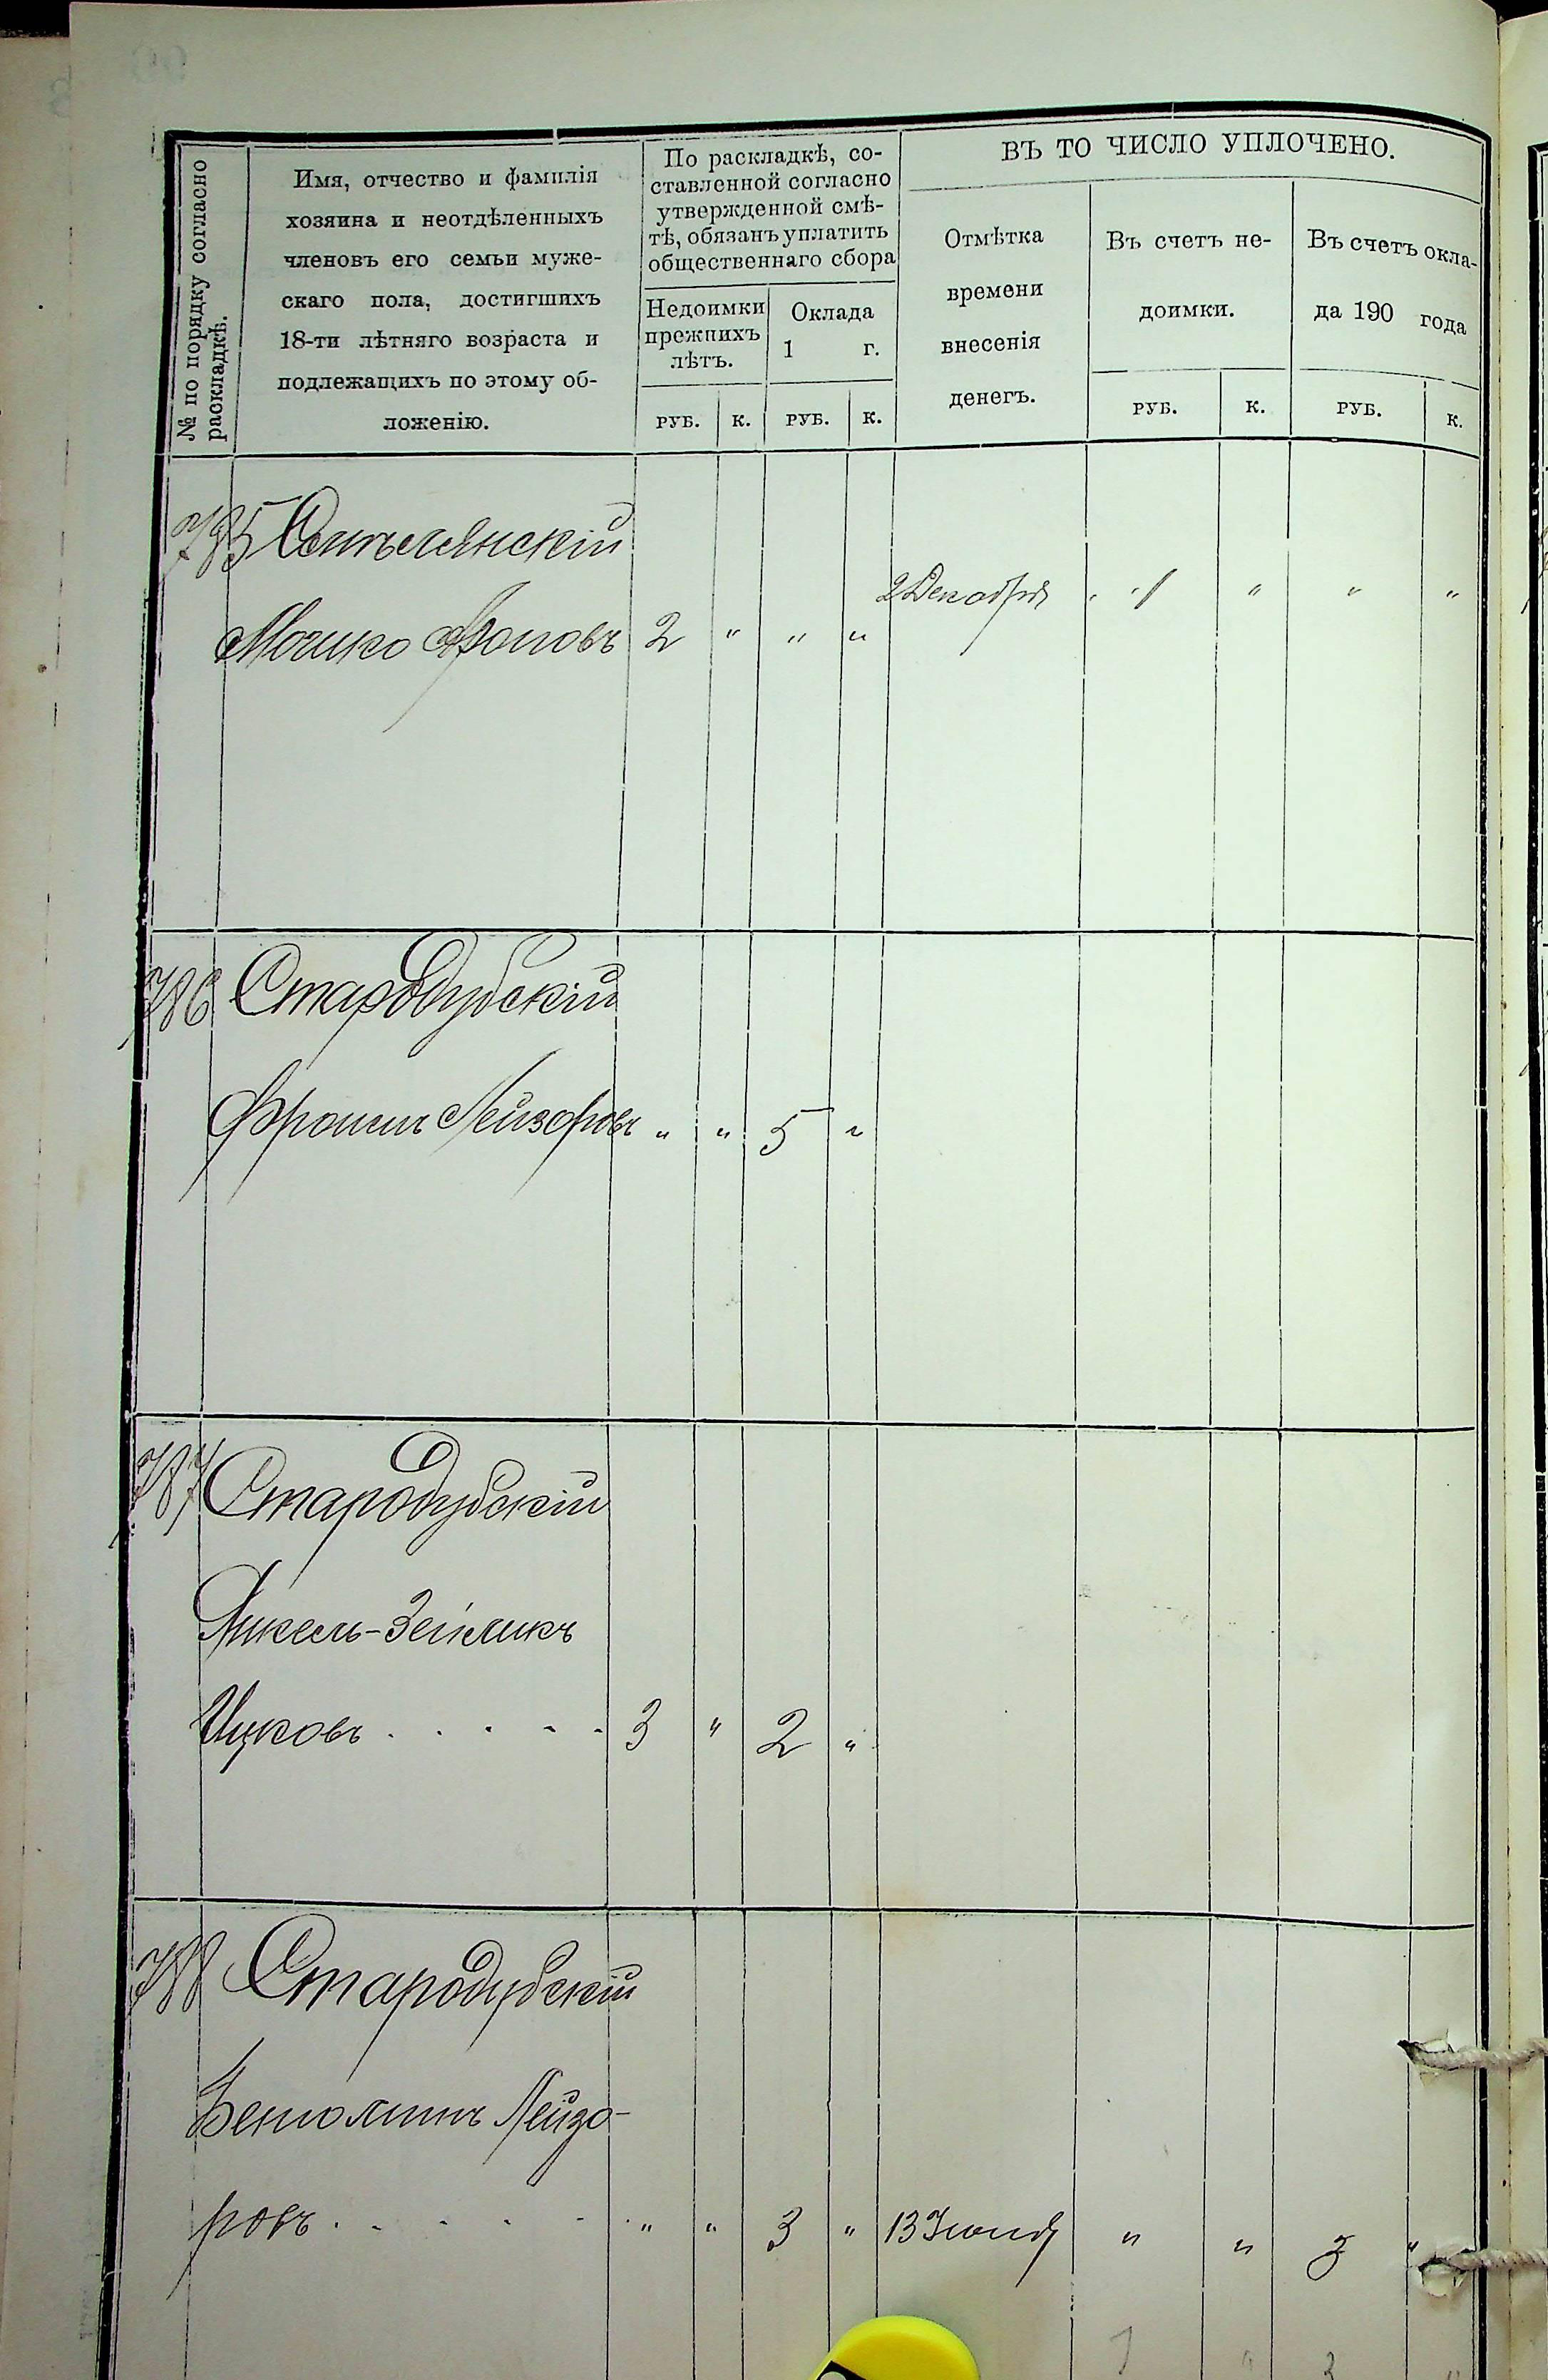 № по порядку согласно раскладкѣ.
Имя, отчество и фамилія
хозяина и неотдѣленныхъ
членовъ его семьи муже-
скаго пола, достигшихъ
18-ти лѣтняго возраста и
подлежащихъ по этому об-
ложенію.
По раскладкѣ, со-
ставленной согласно
утвержденной смѣ-
тѣ, обязанъ уплатить
общественнаго сбора
Недоимки
прежнихъ
лѣтъ.
Оклада
1 г.
РУБ. К. РУБ. К.
ВЪ ТО ЧИСЛО УПЛОЧЕНО.
Отмѣтка
времени
внесенія
денегъ.
Въ счетъ не-
доимки.
РУБ. К.
Въ счетъ окла-
да 190 года
РУБ. К.
785
2 Декабря " 1 " " "
Мошко Ароновъ 2 " " "
786 Стародубскій
Фроимъ Лейзоровъ " " 5 "
787 Стародубскій
Янкель-Зейликъ
Ицковъ . . . . . 3 " 2 "
788 Стародубскій
Беніоминъ Лейзо-
ровъ . . . . . " " 3 " 13 Іюня " " 3 "